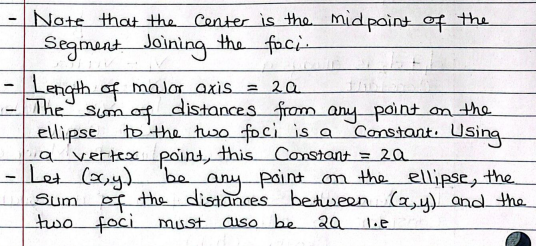 - Note that the Center is the midpoint of the
Segment Joining the foci.
- Length of major axis = 2a
- The sum of distances from any point on the
ellipse to the two foci is a Constant. Using
a vertex point, this Constant = 2a
- Let (x,y) be any point on the ellipse, the
Sum of the distances between (x,y) and the
two foci must also be 2a i.e